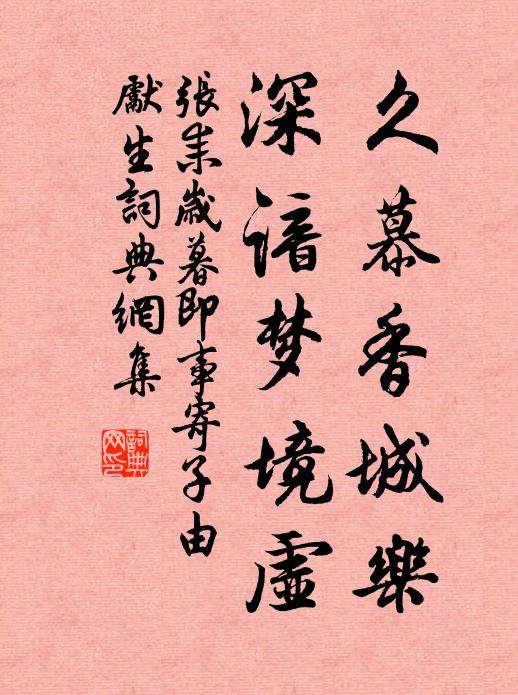 久慕香城樂
深諳梦境虛
張耒歲暮即事寄子由
獻生詞典網集
詞典网印